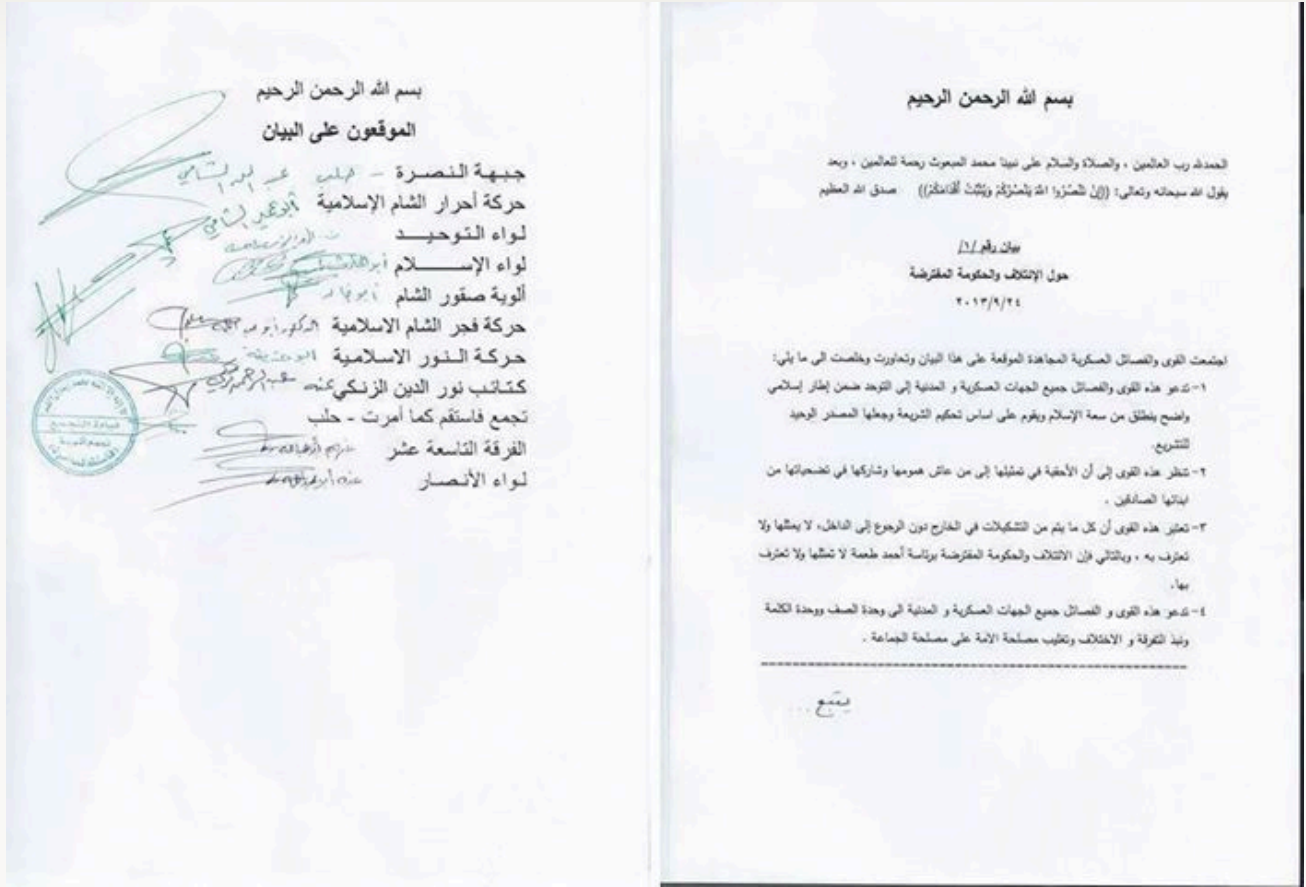 بسم الله الرحمن الرحيم
الحمدلله رب العالمين ، والصلاة والسلام على نبينا محمد المبعوث رحمة للعالمين ، وبعد
يقول الله سبحانه وتعالى: ((إِنْ تَنْصُرُوا اللهَ يَنْصُرْكُمْ وَيُثَبِّتْ أَقْدَامَكُمْ)) صدق الله العظيم
بيان رقم /١/
حول الإئتلاف والحكومة المفترضة
٢٠١٣/٩/٢٤
اجتمعت القوى والفصائل العسكرية المجاهدة الموقعة على هذا البيان وتحاورت وخلصت الى ما يلي:
١- تدعو هذه القوى والفصائل جميع الجهات العسكرية و المدنية إلى التوحد ضمن إطار إسلامي
واضح ينطلق من سعة الإسلام ويقوم على اساس تحكيم الشريعة وجعلها المصدر الوحيد
للتشريع.
٢- تنظر هذه القوى إلى أن الأحقية في تمثيلها إلى من عاش همومها وشاركها في تضحياتها من
ابنائها الصادقين .
٣- تعتبر هذه القوى أن كل ما يتم من التشكيلات في الخارج دون الرجوع إلى الداخل، لا يمثلها ولا
تعترف به ، وبالتالي فإن الائتلاف والحكومة المفترضة برئاسة أحمد طعمة لا تمثلها ولا تعترف
بها.
٤- تدعو هذه القوى و الفصائل جميع الجهات العسكرية و المدنية الى وحدة الصف ووحدة الكلمة
ونبذ التفرقة و الاختلاف وتغليب مصلحة الامة على مصلحة الجماعة .
يتبع ...
بسم الله الرحمن الرحيم
الموقعون على البيان
جبهة النصرة - حلب
حركة أحرار الشام الإسلامية أبو عمير الشامي
لواء التوحيد
لواء الإسلام
ألوية صقور الشام
حركة فجر الشام الاسلامية
حركة النور الاسلامية
كتائب نور الدين الزنكي
تجمع فاستقم كما أمرت - حلب
الفرقة التاسعة عشر
لواء الأنصار